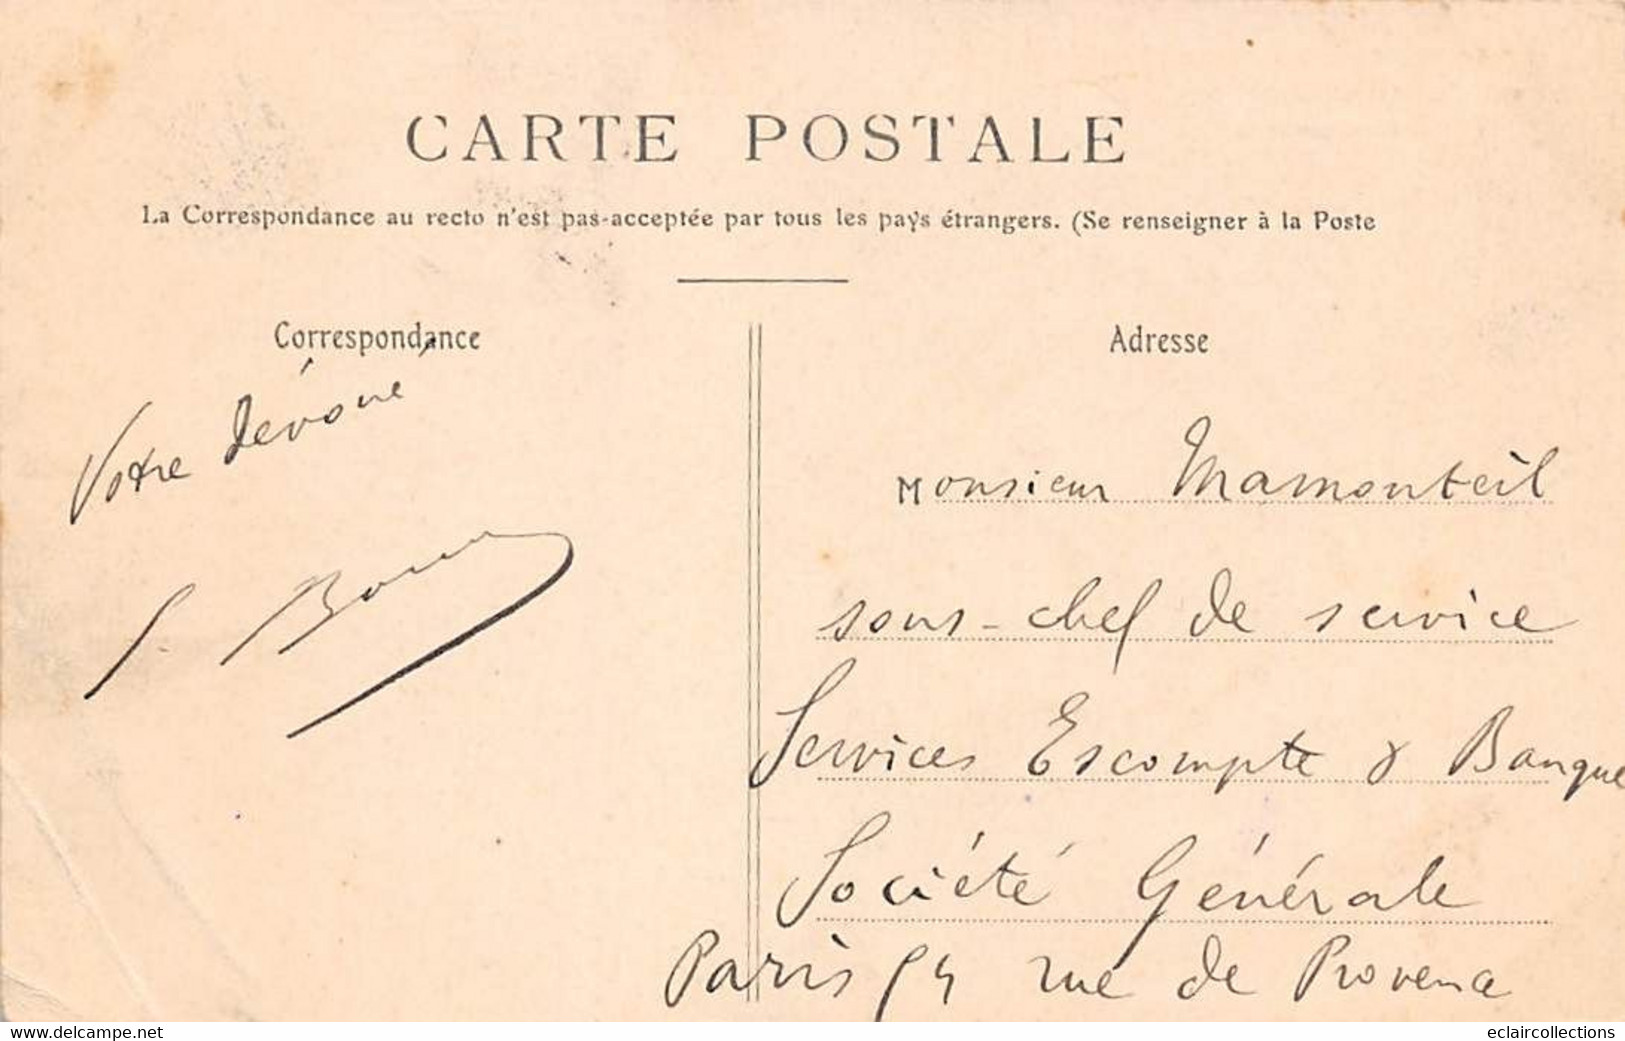 CARTE POSTALE
La Correspondance au recto n'est pas acceptée par tous les pays étrangers. (Se renseigner à la Poste
Correspondance
Votre dévoué
Adresse
Monsieur Mamonteil
sous-chef de service
Services Escompte & Banque
Société Générale
Paris 54 rue de Provence
www.delcampe.net
eclaircollections